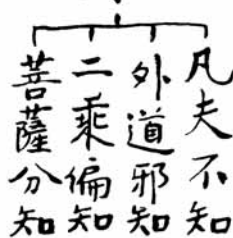 凡夫不知
外道邪知
二乘偏知
菩薩分知